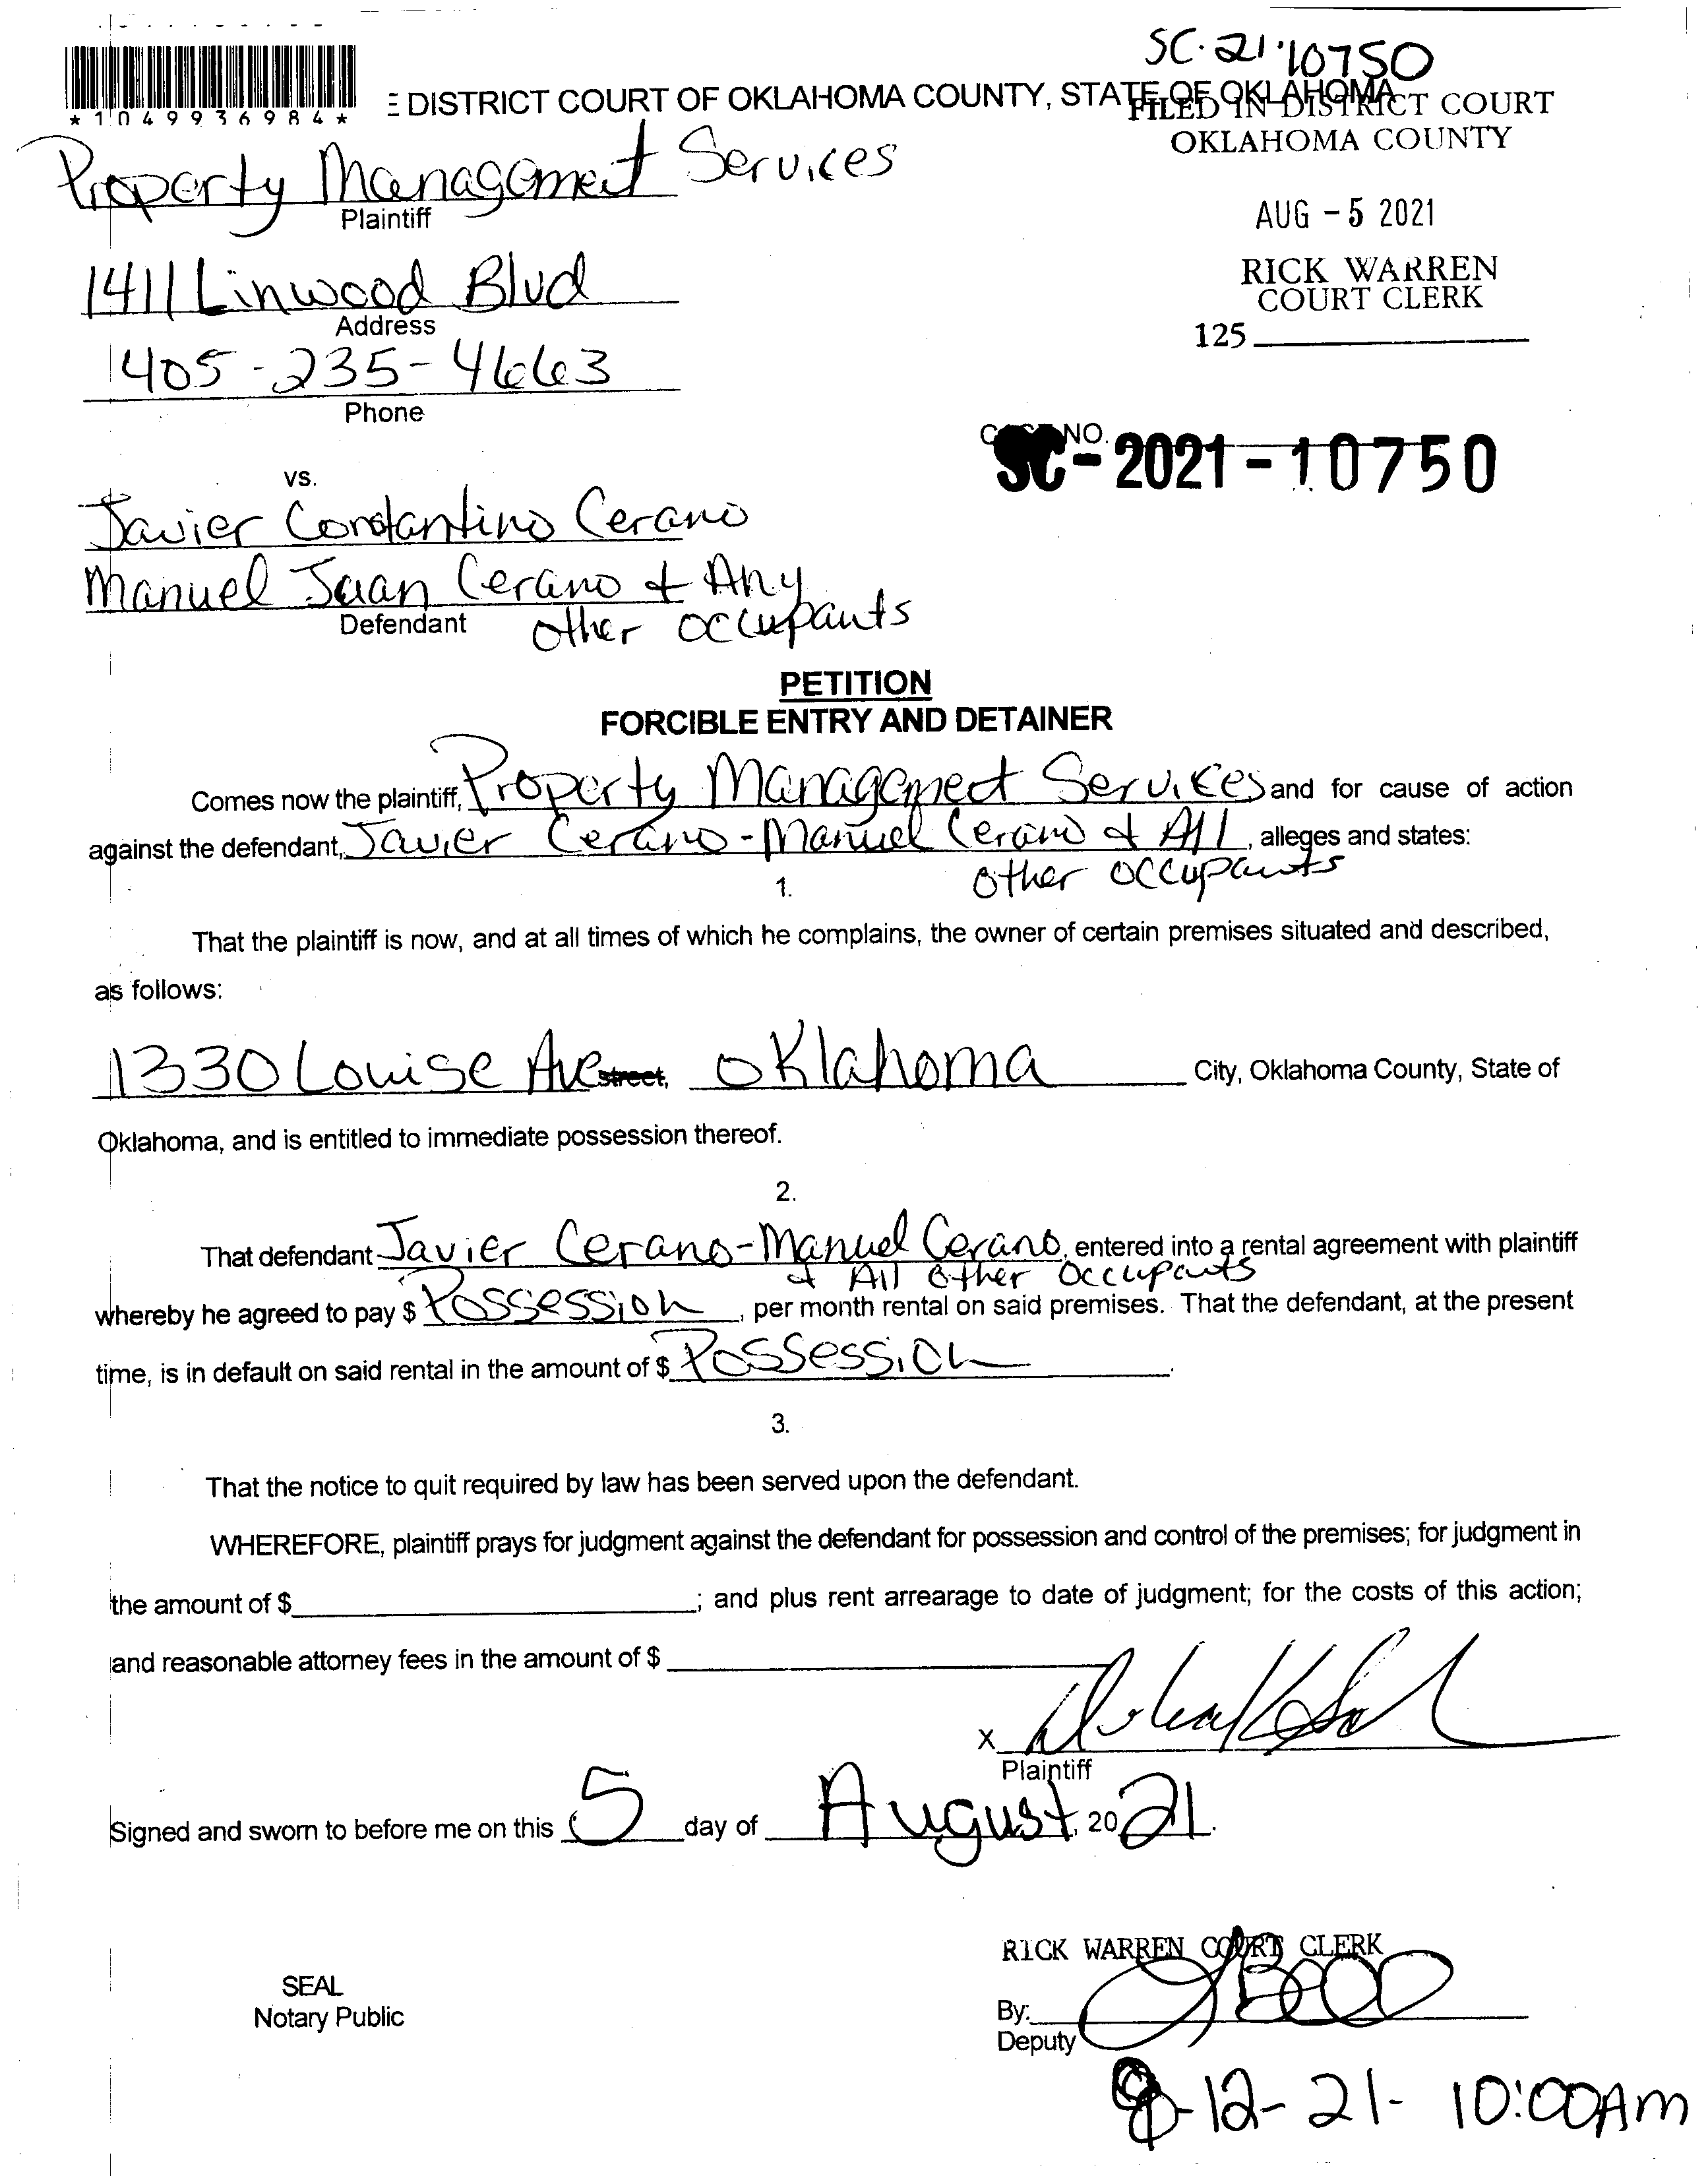 SC-21-10750
*1049936984*
E DISTRICT COURT OF OKLAHOMA COUNTY, STATE OF OKLAHOMA
FILED IN DISTRICT COURT
OKLAHOMA COUNTY
Property Management Services
Plaintiff
AUG - 5 2021
1411 Linwood Blvd
Address
RICK WARREN
COURT CLERK
125
405-235-4663
Phone
NO.
SC-2021-10750
vs.
Javier Constantino Cerano
Manuel Juan Cerano & Any
Defendant other occupants
PETITION
FORCIBLE ENTRY AND DETAINER
Comes now the plaintiff, Property Management Services and for cause of action
against the defendant, Javier Cerano-Manuel Cerano & All, alleges and states:
other occupants
1.
That the plaintiff is now, and at all times of which he complains, the owner of certain premises situated and described,
as follows:
1330 Louise Ave street, Oklahoma City, Oklahoma County, State of
Oklahoma, and is entitled to immediate possession thereof.
2.
That defendant Javier Cerano-Manuel Cerano, entered into a rental agreement with plaintiff
& All Other Occupants
whereby he agreed to pay $ Possession, per month rental on said premises. That the defendant, at the present
time, is in default on said rental in the amount of $ Possession.
3.
That the notice to quit required by law has been served upon the defendant.
WHEREFORE, plaintiff prays for judgment against the defendant for possession and control of the premises; for judgment in
the amount of $ ; and plus rent arrearage to date of judgment; for the costs of this action;
and reasonable attorney fees in the amount of $
X
Plaintiff
Signed and sworn to before me on this 5 day of August, 2021.
RICK WARREN COURT CLERK
SEAL
Notary Public
By:
Deputy
8-12-21- 10:00AM